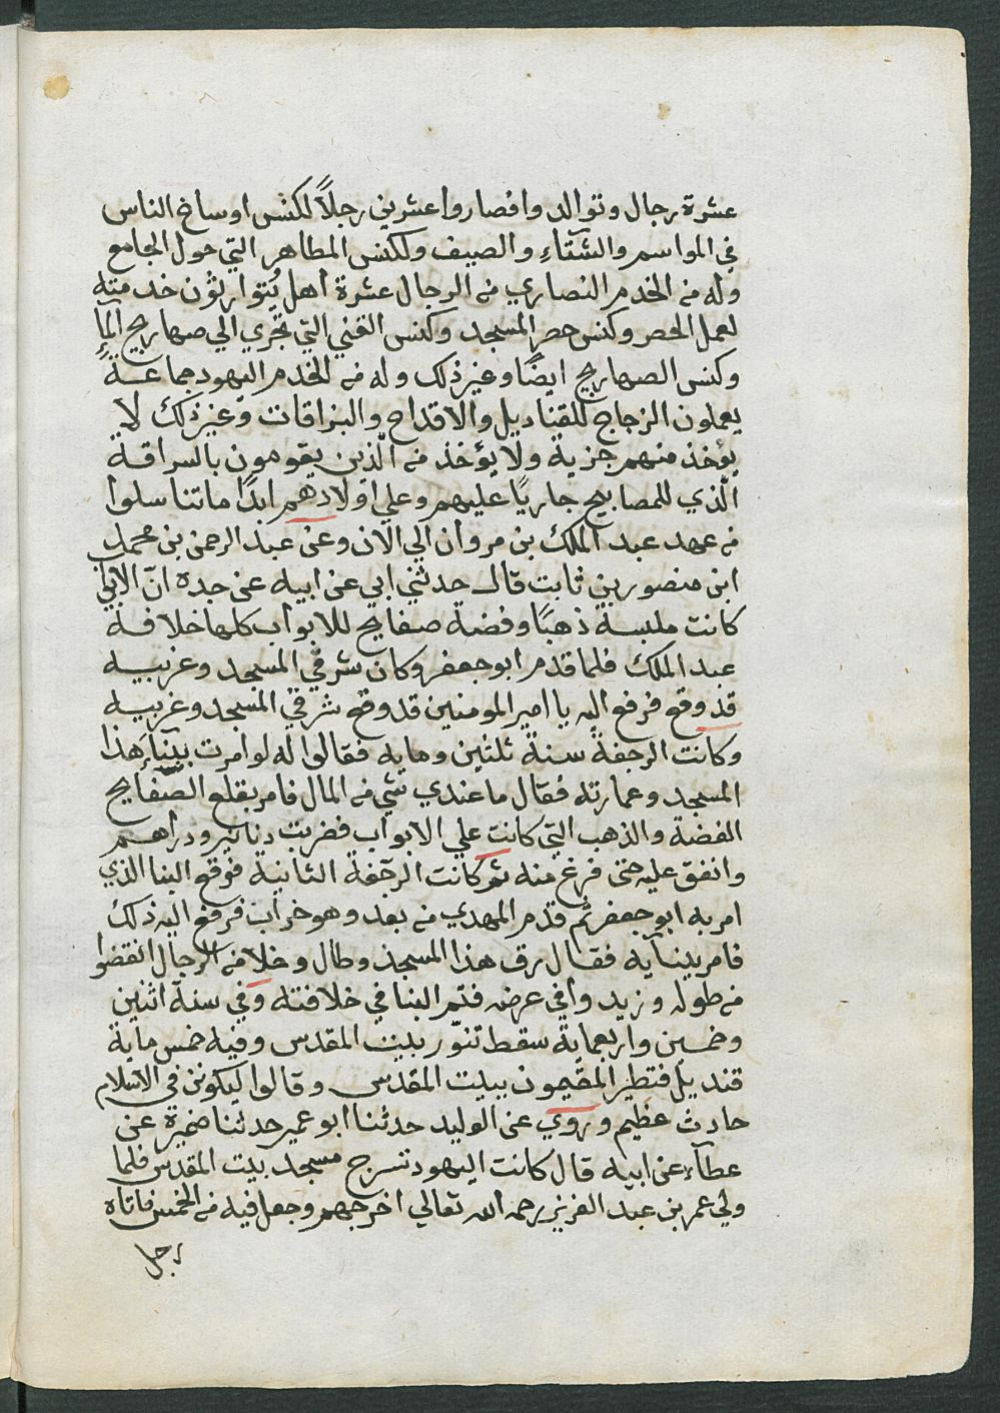 عشرة رجال وتوالدوا فصاروا عشرين رجلاً لكنس اوساخ الناس
في المواسم والشتاءِ والصيف ولكنس المطاهر التي حول الجامع
وله من الخدم النصاري من الرجال عشرة اهل يتوارثون خدمته
لعمل الحصر وكنس حصر المسجد وكنس القني التي تجري الي صهاريج المآءِ
وكنس الصهاريج ايضًا وغير ذلك وله من الخدم اليهود جماعـة
يعملون الزجاج للقناديل والاقداح والبزاقات وغير ذلك لا
يوخذ منهم جزية ولا يؤخذ من الّذين يقومون بالسراقـة
الّذي للمصابيح جاريًا عليهم وعلي اولادهم ابدًا ما تناسلوا
من عهد عبد الملك بن مروان الي الان وعن عبد الرحمن بن محمد
ابن منصور بن ثابت قال حدثني ابي عن ابيه عن جده انّ الابواب
كانت ملبسة ذهبًا وفضة صفايح للابواب كلها خلافـة
عبد الملك فلما قدم ابو جعفر وكان شرقي المسجد وغربيـه
قد وقع فرفع اليه يا امير المومنين قد وقع شرقي المسجد وغربيـه
وكانت الرجفة سنة ثلثين ومايه فقالوا له لو امرت ببنآءِ هذا
المسجد وعمارته فقال ما عندي شي من المال فامر بقلع الصّفايح
الفضة والذهب التي كانت علي الابواب فضربت دنانير ودراهـم
وانفق عليه حتى فرغ منه ثم كانت الرجفة الثانية فوقع البنا الذي
امر به ابو جعفر ثم قدم المهدي من بعد وهو خراب فرفع اليه ذلك
فامر ببنآيه فقال رق هذا المسجد وطال وخلا من الرجال انقضوا
من طوله وزيدوا في عرضه فتم البنا في خلافته وفي سنة اثنين
وخمسين واربعماية سقط تنوّر بيت المقدس وفيه خمس ماية
قنديل فتطير المقيمون ببيت المقدس وقالوا ليكونن في الاسلام
حادث عظيم وروي عن الوليد حدثنا ابو عمير حدثنا ضمرة عن
عطآء عن ابيه قال كانت اليهود تسرج مسجد بيت المقدس فلما
ولي عمر بن عبد العزيز رحمه الله تعالي اخرجهم وجعل فيه من الخمس فاتاه
رجل